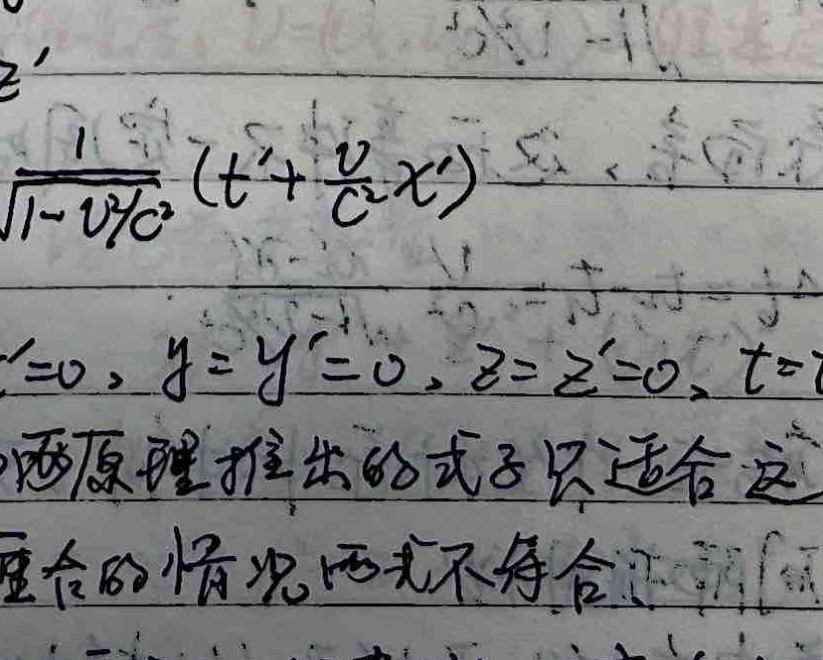 z′
1/√(1-v²/c²) (t′+ v/c² x′)
′=0、y=y′=0、z=z′=0、t=
两原理推出的式子只适合这
重合的情况两式不符合